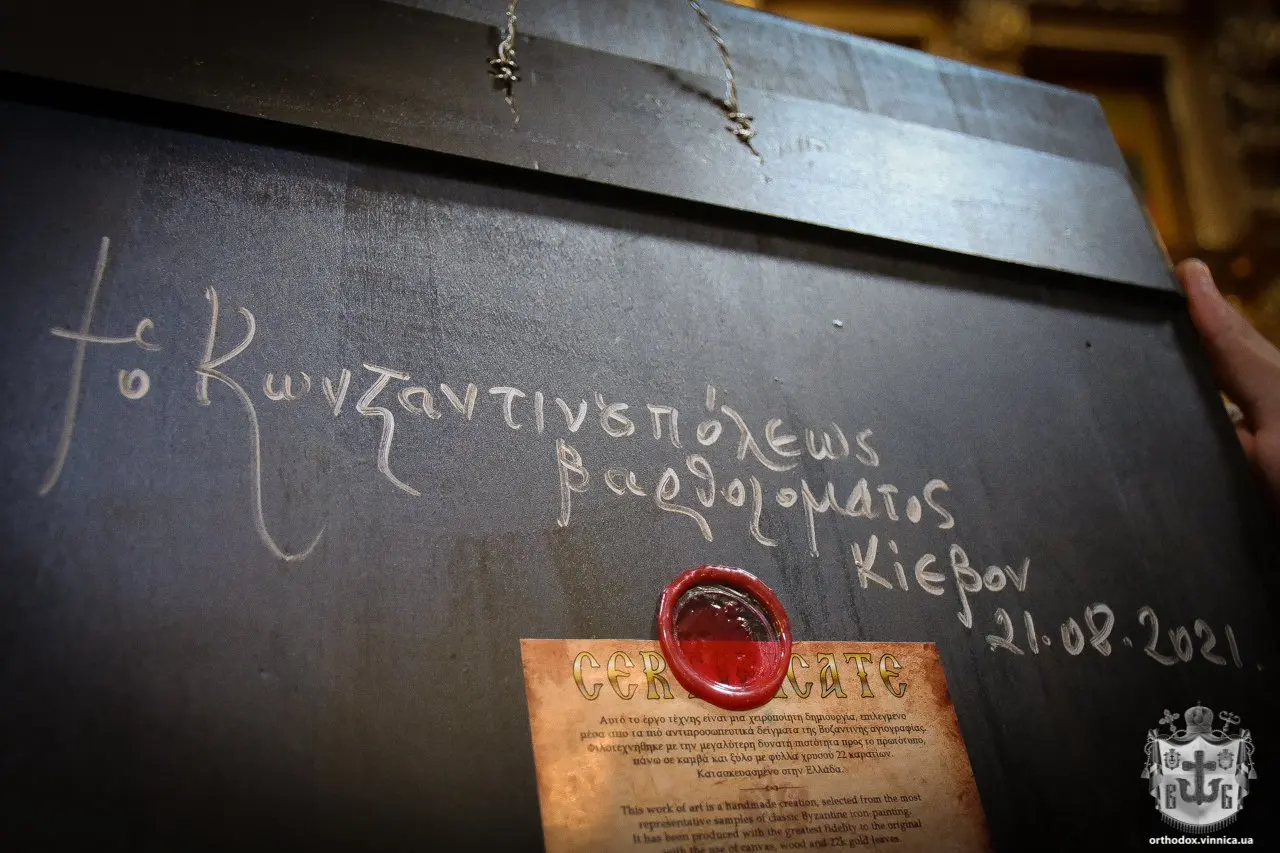 † ὁ Κωνϛαντινȣπόλεως
βαρθολοματος
Κίεβον
21.08.2021.
CER CATE
Αυτό το έργο τέχνης είναι μια χειροποίητη δημιουργία, επιλεγμένο
μέσα απο τα πιό αντιπροσωπευτικά δείγματα της Βυζαντινης αγιογραφίας.
Φιλοτεχνήθηκε με την μεγαλύτερη δυνατή πιστότητα προς το πρωτότυπο,
πάνω σε καμβά και ξύλο με φύλλα χρυσού 22 καρατίων.
Κατασκευασμένο στην Ελλάδα.
This work of art is a handmade creation, selected from the most
representative samples of classic Byzantine icon-painting.
It has been produced with the greatest fidelity to the original
with the use of canvas, wood and 22k gold leaves.
orthodox.vinnica.ua